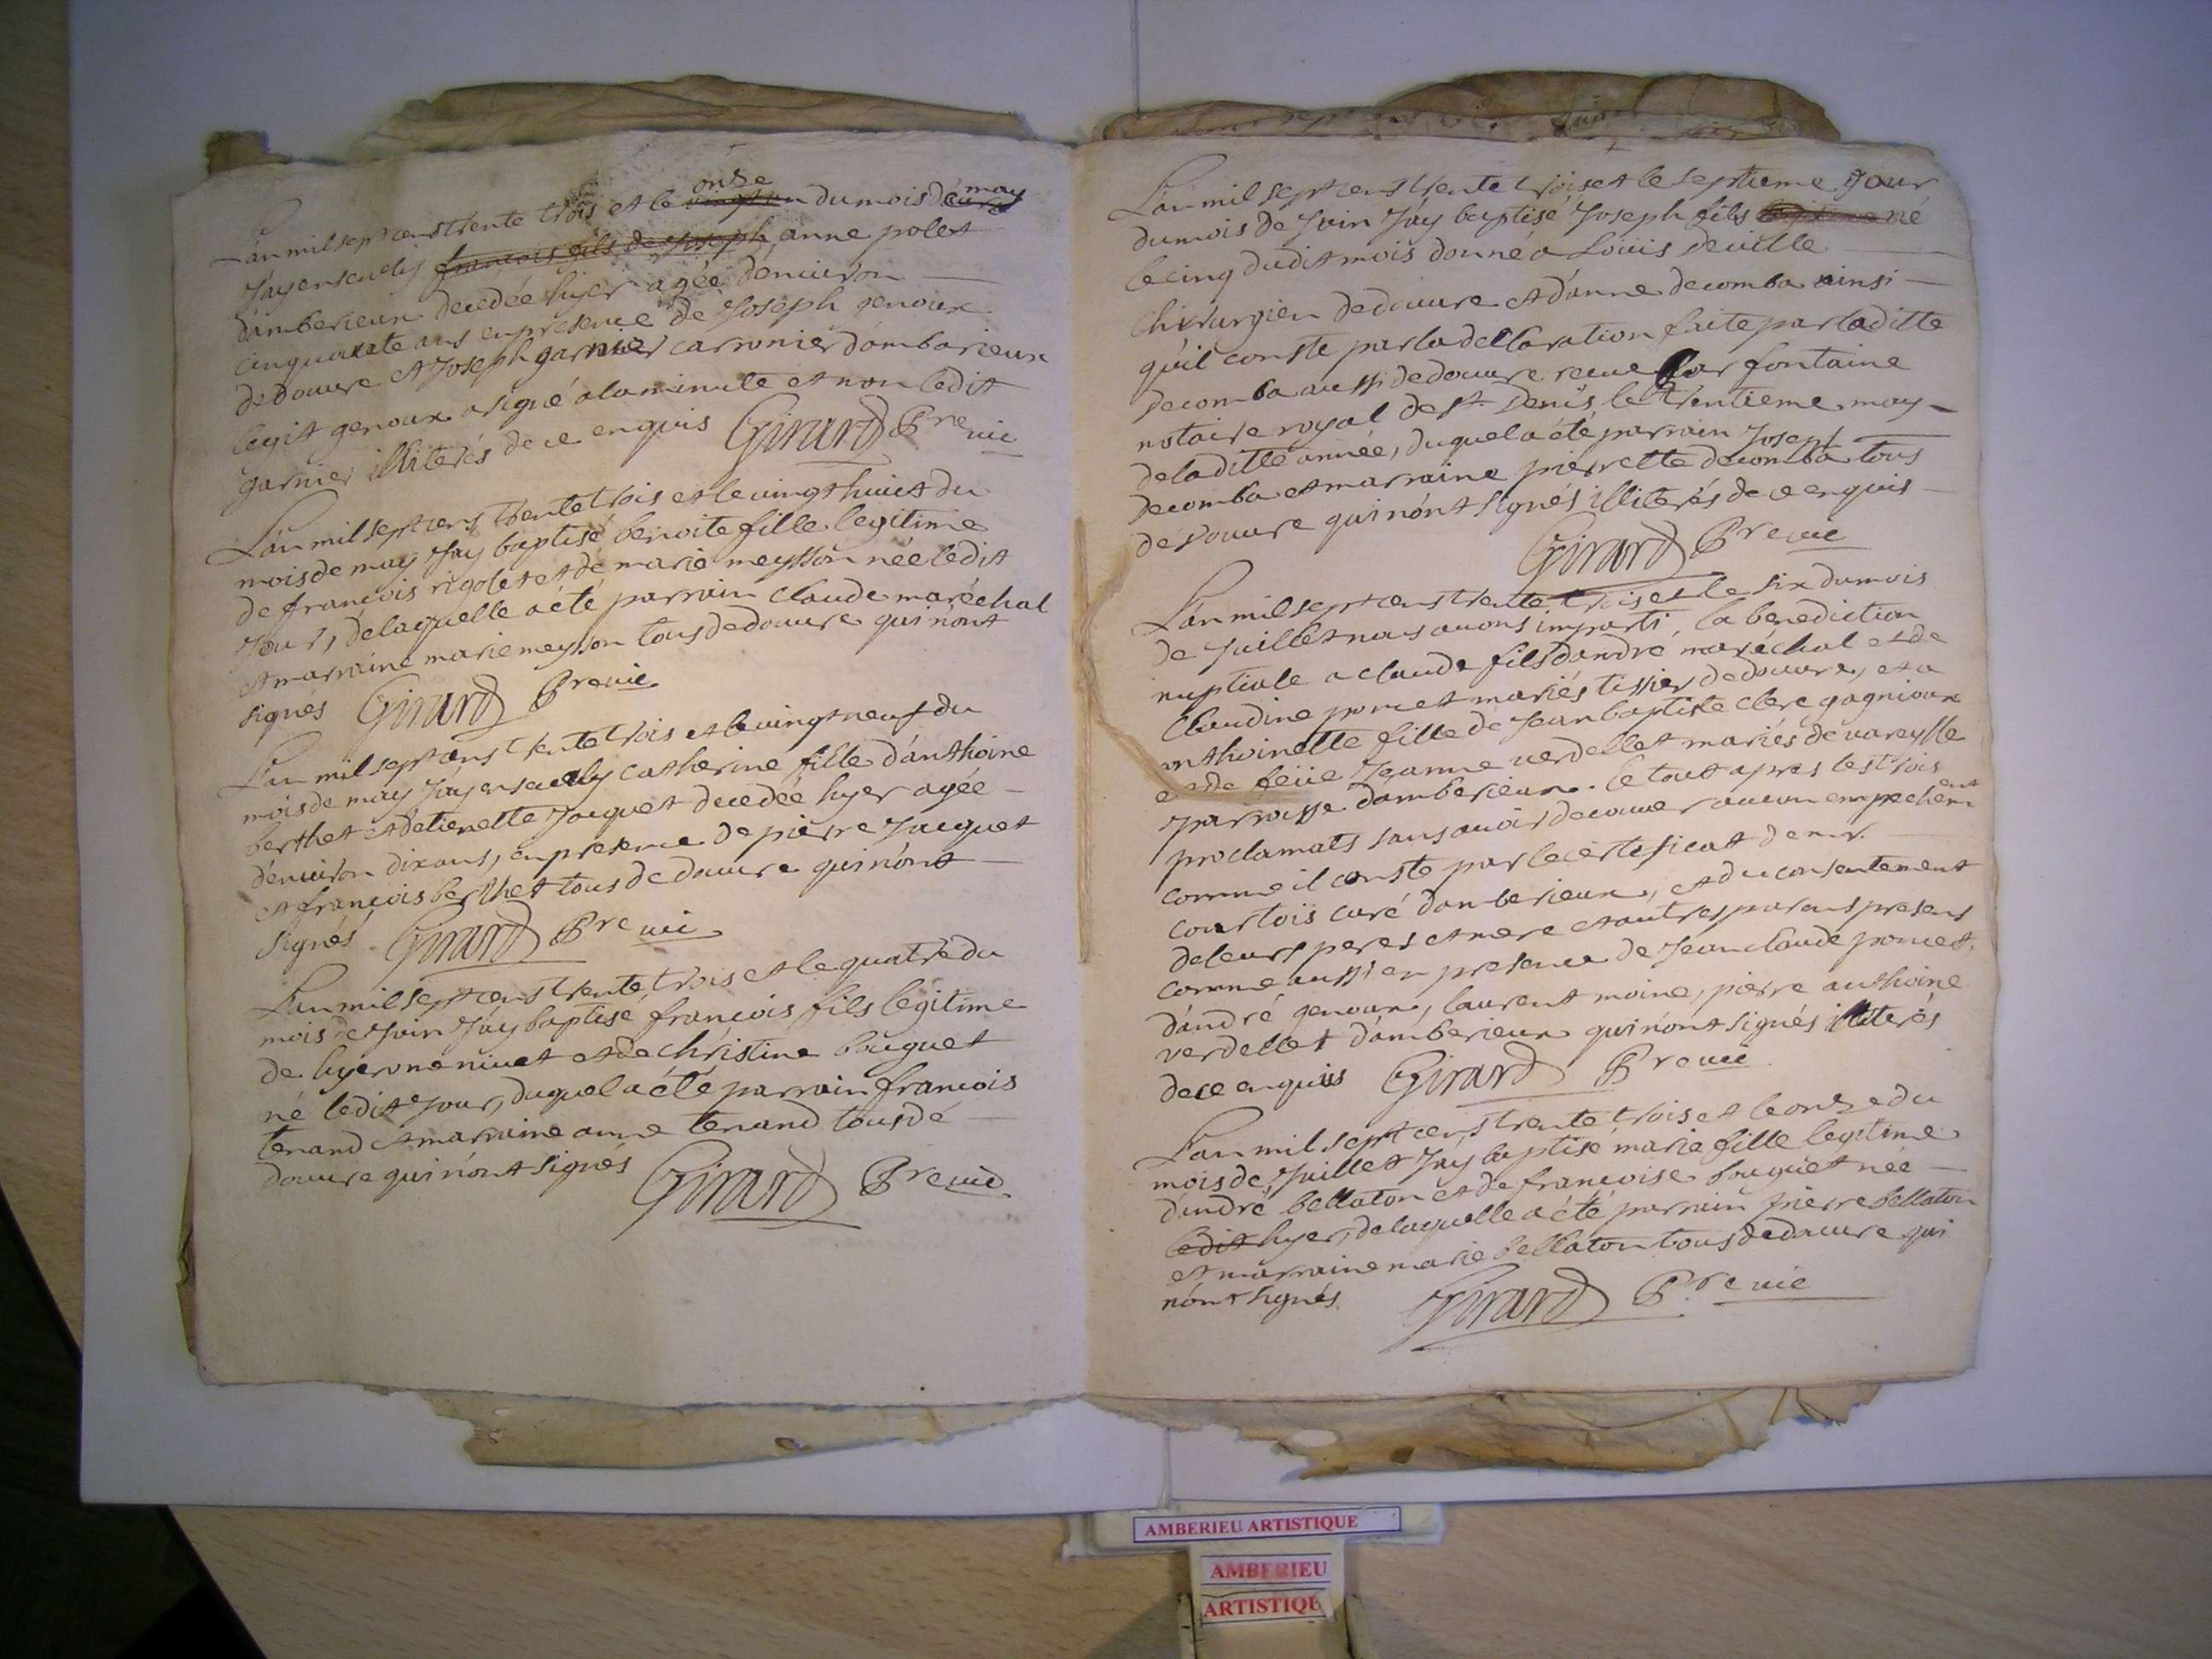 L'an mil sept cens trente trois et le vingt un onse du mois d'avril may
J'ay enseuely francois fils de Joseph anne polet
d'amberieux decedée hyer agée d'enuiron
cinquante ans en presence de Joseph genoux
de douure et Joseph garnier carronier d'ambarieux
legit genoux a signé a la minute et non ledit
garnier illiterés de ce enquis Girard Pre vic
L'an mil sept cens trente trois et le vingt huict du
mois de may J'ay baptisé benoite fille legitime
de françois rigolet et de marie meysson née ledit
Jour, de laquelle a été parrain Claude maréchal
et marraine marie meysson tous de douure qui n'ont
signés Girard Pre vic
L'an mil sept cens trente trois et le vingt neuf du
mois de may J'ay enseuely catherine fille d'anthoine
berthet et d'etienette Jacquet decedée hyer agée
d'enuiron dix ans, en presence de pierre Jacquet
et françois berthet tous de douure qui n'ont
signés Girard Pre vic
L'an mil sept cens trente trois et le quatre du
mois de Juin J'ay baptisé françois fils légitime
de hyerome niuet et de christine bouguet
né ledit Jour, duquel a été parrain françois
tenand et marraine anne tenand tous de
douure qui n'ont signés Girard Pre vic
L'an mil sept cens trente trois et le septieme Jour
du mois de Juin J'ay baptisé Joseph fils legitime né
le cinq dudit mois donné a Louis deville
chirurgien de douure et d'anne decomba ainsi
qu'il conste par la declaration faite par laditte
decomba aussi de douure recue par fontaine
notaire royal de st. Denis le trentieme may
de laditte année, duquel a été parrain Joseph
decomba et marraine pierrette decomba tous
de douure qui n'ont signés illiterés de ce enquis
Girard Pre vic
L'an mil sept cens trente trois et le six du mois
de Juillet nous auons imparti la benediction
nuptiale a claude fils d'andré maréchal et de
Claudine poncet mariés tissier de douure, et a
anthoinette fille de Jean baptiste clerc gagnioux
et de feüe Jeanne verdellet mariés de vareylle
parroisse d'amberieux. le tout apres les trois
proclamats sans auoir decouuer aucun empechement
comme il conste par le certificat de mr.
courtois curé d'amberieux, et du consentement
de leurs peres et mere et autres parens presens
comme aussi en presence de Jean claude poncet,
d'andré genoux, laurent moine, pierre anthoine
verdellet d'amberieux qui n'ont signés illiterés
de ce enquis Girard Pre vic
L'an mil sept cens trente trois et le onze du
mois de Juillet J'ay baptisé marie fille legitime
d'andré bellaton et de françoise bouguet née
ledit hyer, de laquelle a été parrain pierre bellaton
et marraine marie bellaton tous de douure qui
n'ont signés. Girard Pre vic
AMBERIEU ARTISTIQUE
AMBERIEU
ARTISTIQU